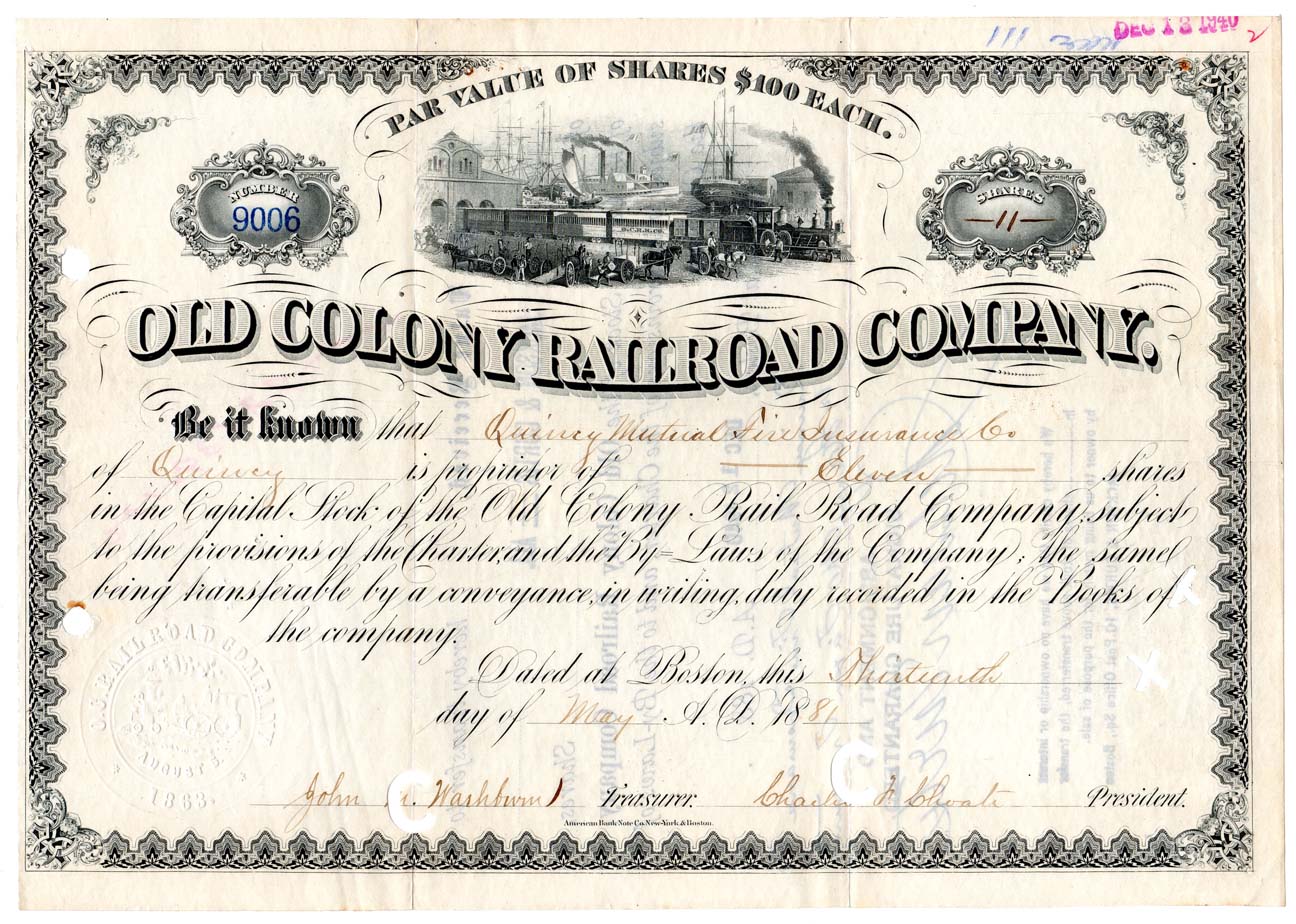 DEC 13 1940
PAR VALUE OF SHARES $100 EACH.
NUMBER
9006
SHARES
11
OLD COLONY RAILROAD COMPANY.
Be it known that Quincy Mutual Fire Insurance Co
of Quincy is proprietor of Eleven shares
in the Capital Stock of the Old Colony Rail Road Company, subject
to the provisions of the Charter, and the By=Laws of the Company; the same
being transferable by a conveyance, in writing, duly recorded in the Books of
the company.
Dated at Boston, this Thirteenth
day of May A.D. 1881
O.C. RAILROAD COMPANY
AUGUST 3.
1863
John M. Washburn Treasurer. Charles F. Choate President.
American Bank Note Co. New-York & Boston.